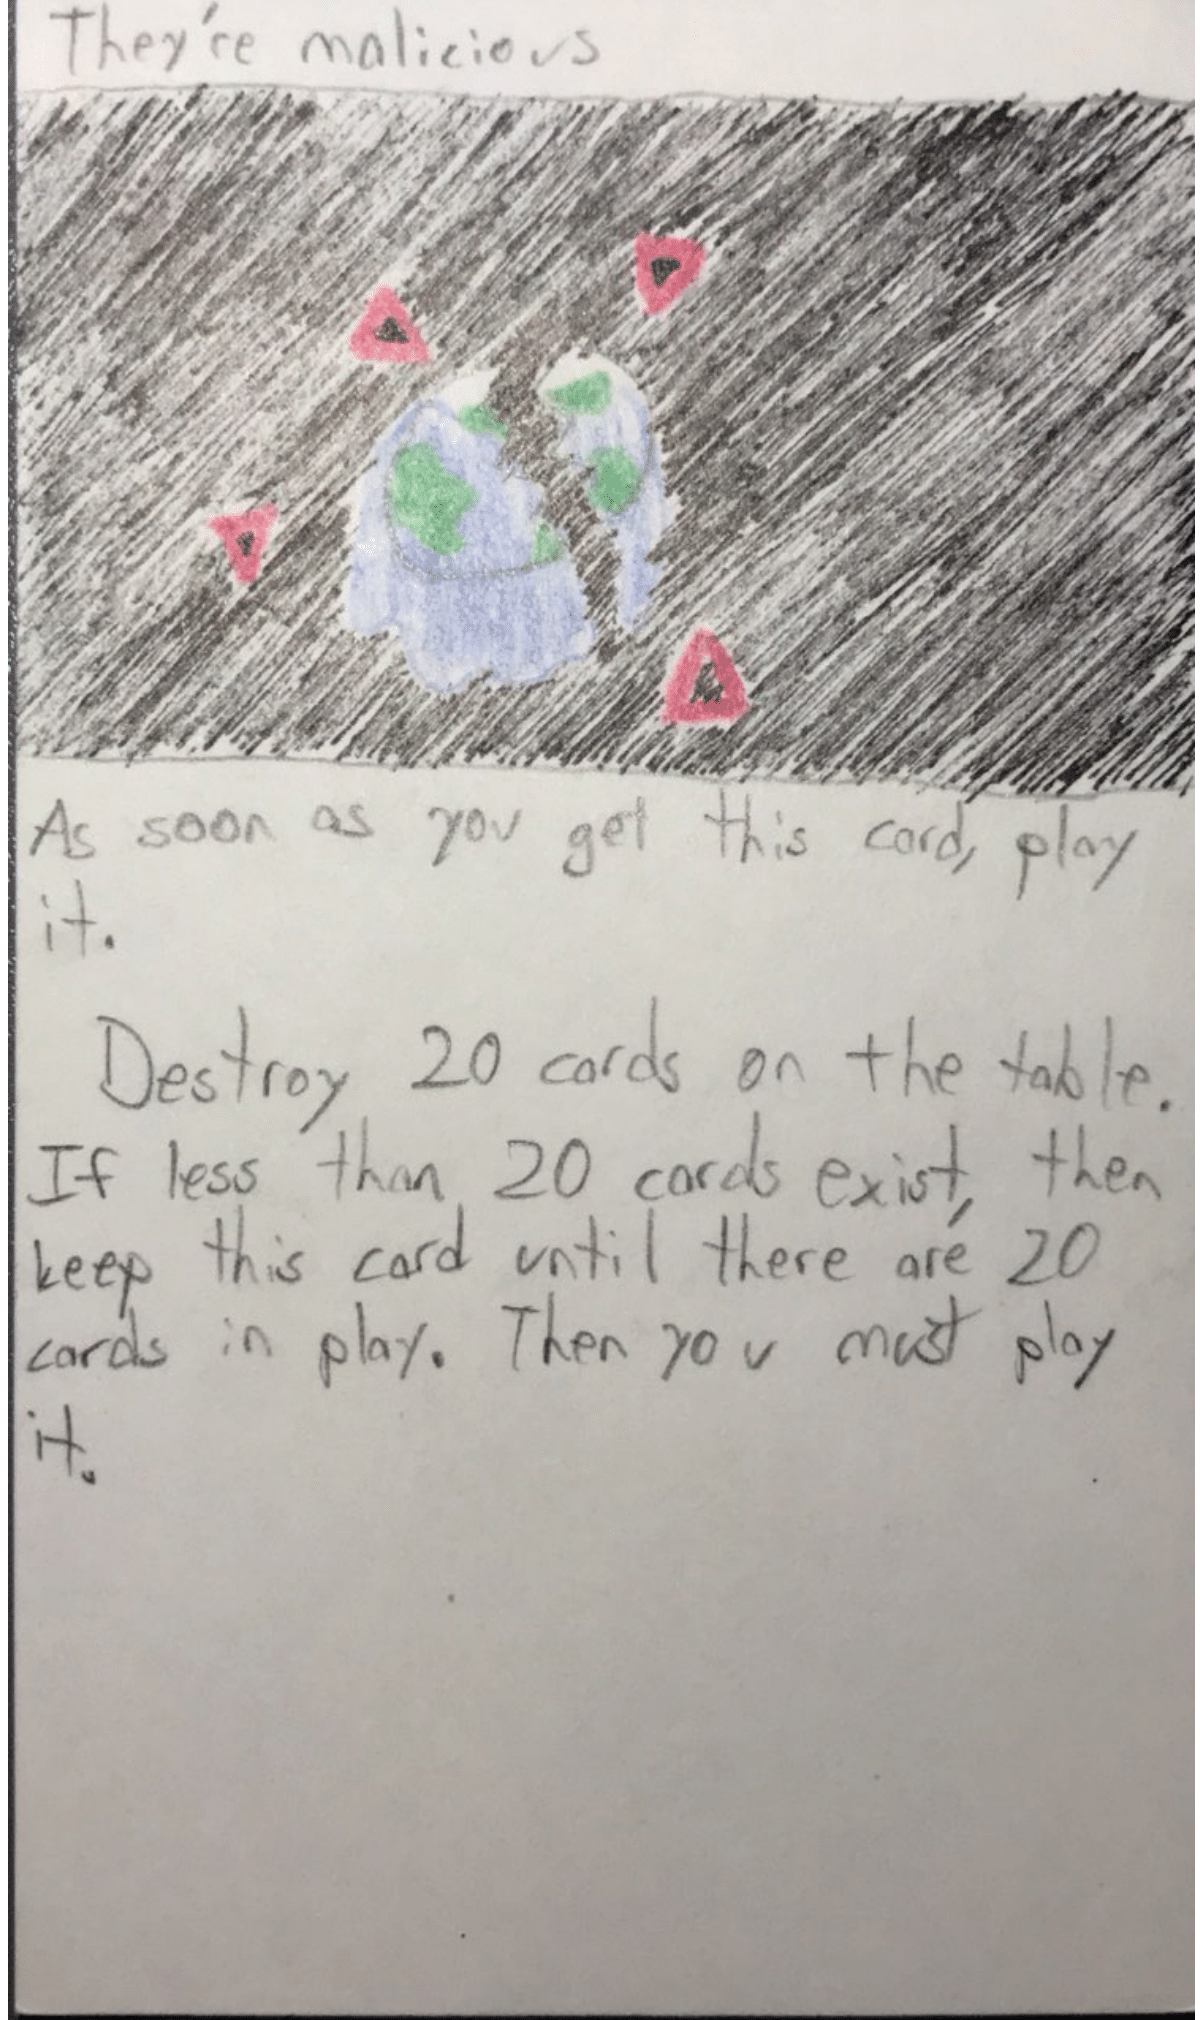 They're malicious
As soon as you get this card, play
it.
Destroy 20 cards on the table.
If less than 20 cards exist, then
keep this card until there are 20
cards in play. Then you must play
it.